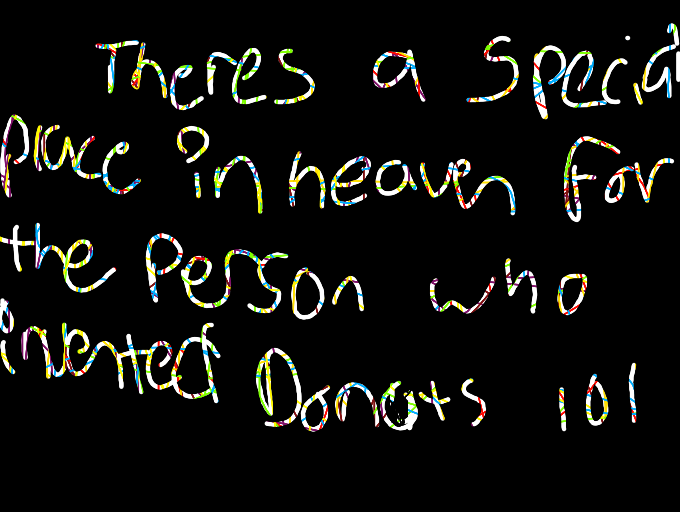 Theres a Special
place in heaven for
the Person who
invented Donots lol